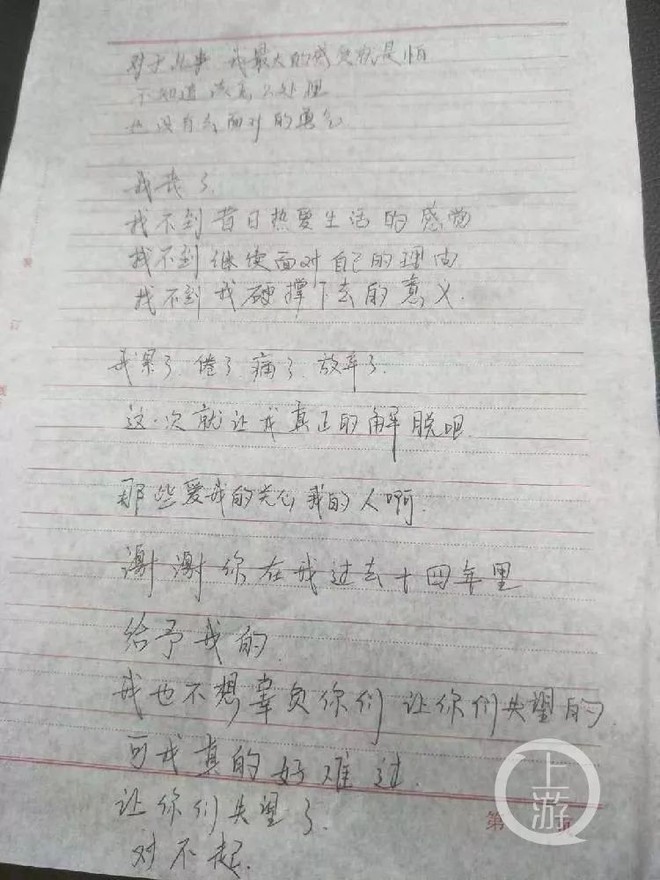 对于此事 我最大的感觉就是怕
不知道该怎么处理
也没有去面对的勇气
我丧了.
找不到昔日热爱生活的感觉
找不到继续面对自己的理由.
找不到我硬撑下去的意义.
我累了 倦了 痛了 放弃了.
这一次就让我真正的解脱吧.
那些爱我的关心我的人啊.
谢谢你在我过去十四年里
给予我的.
我也不想辜负你们 让你们失望的.
可我真的好难过.
让你们失望了.
对不起.
第 页
上游